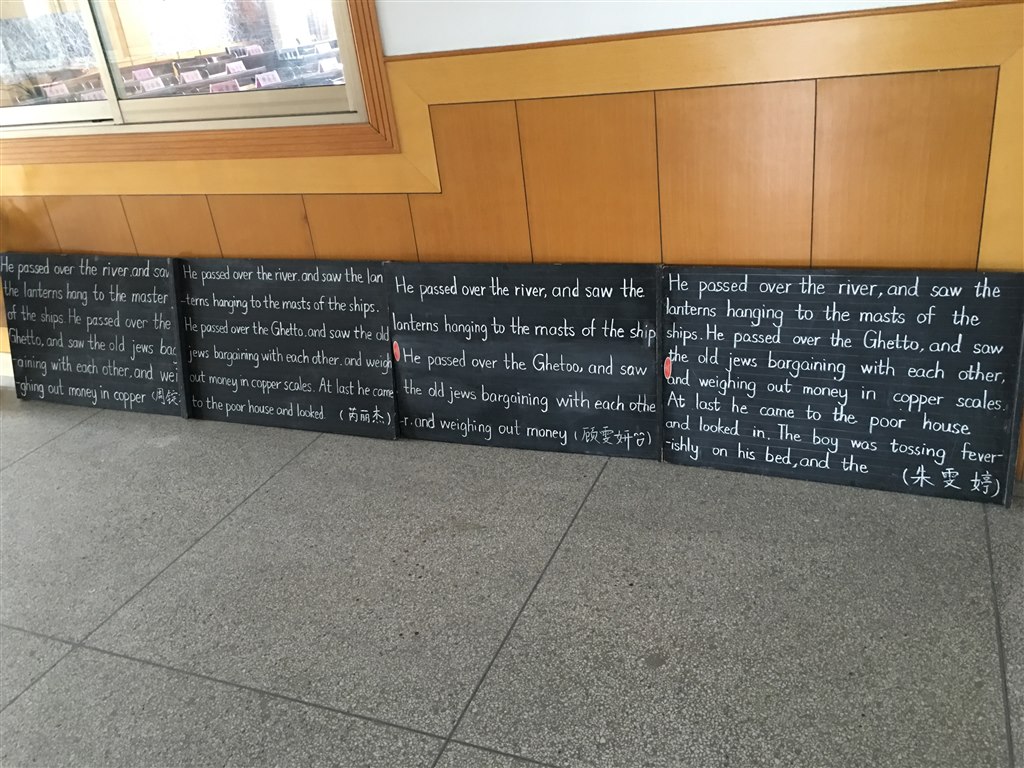 He passed over the river. and saw
the lanterns hang to the master
of the ships. He passed over the
Ghetto, and saw the old jews bac
-gaining with each other, and wei
-ghing out money in copper (周
He passed over the river. and saw the lan
-terns hanging to the masts of the ships.
He passed over the Ghetto, and saw the old
jews bargaining with each other. and weigh
out money in copper scales. At last he came
to the poor house and looked (芮丽杰)
He passed over the river, and saw the
lanterns hanging to the masts of the ship
He passed over the Ghetoo, and saw
the old jews bargaining with each othe
-r. and weighing out money (顾雯妍
He passed over the river, and saw the
lanterns hanging to the masts of the
ships. He passed over the Ghetto, and saw
the old jews bargaining with each other,
and weighing out money in copper scales.
At last he came to the poor house
and looked in. The boy was tossing fever-
-ishly on his bed, and the
(朱雯婷)